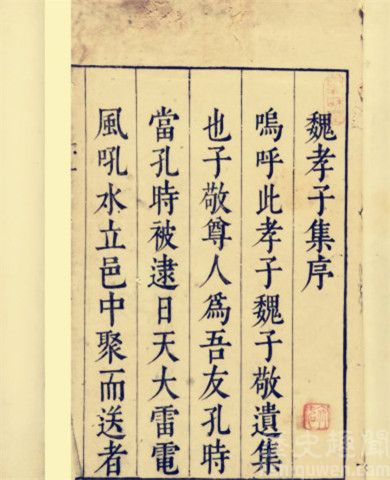 魏孝子集序
嗚呼此孝子魏子敬遺集
也子敬尊人為吾友孔時
當孔時被逮日天大雷電
風吼水立邑中聚而送者